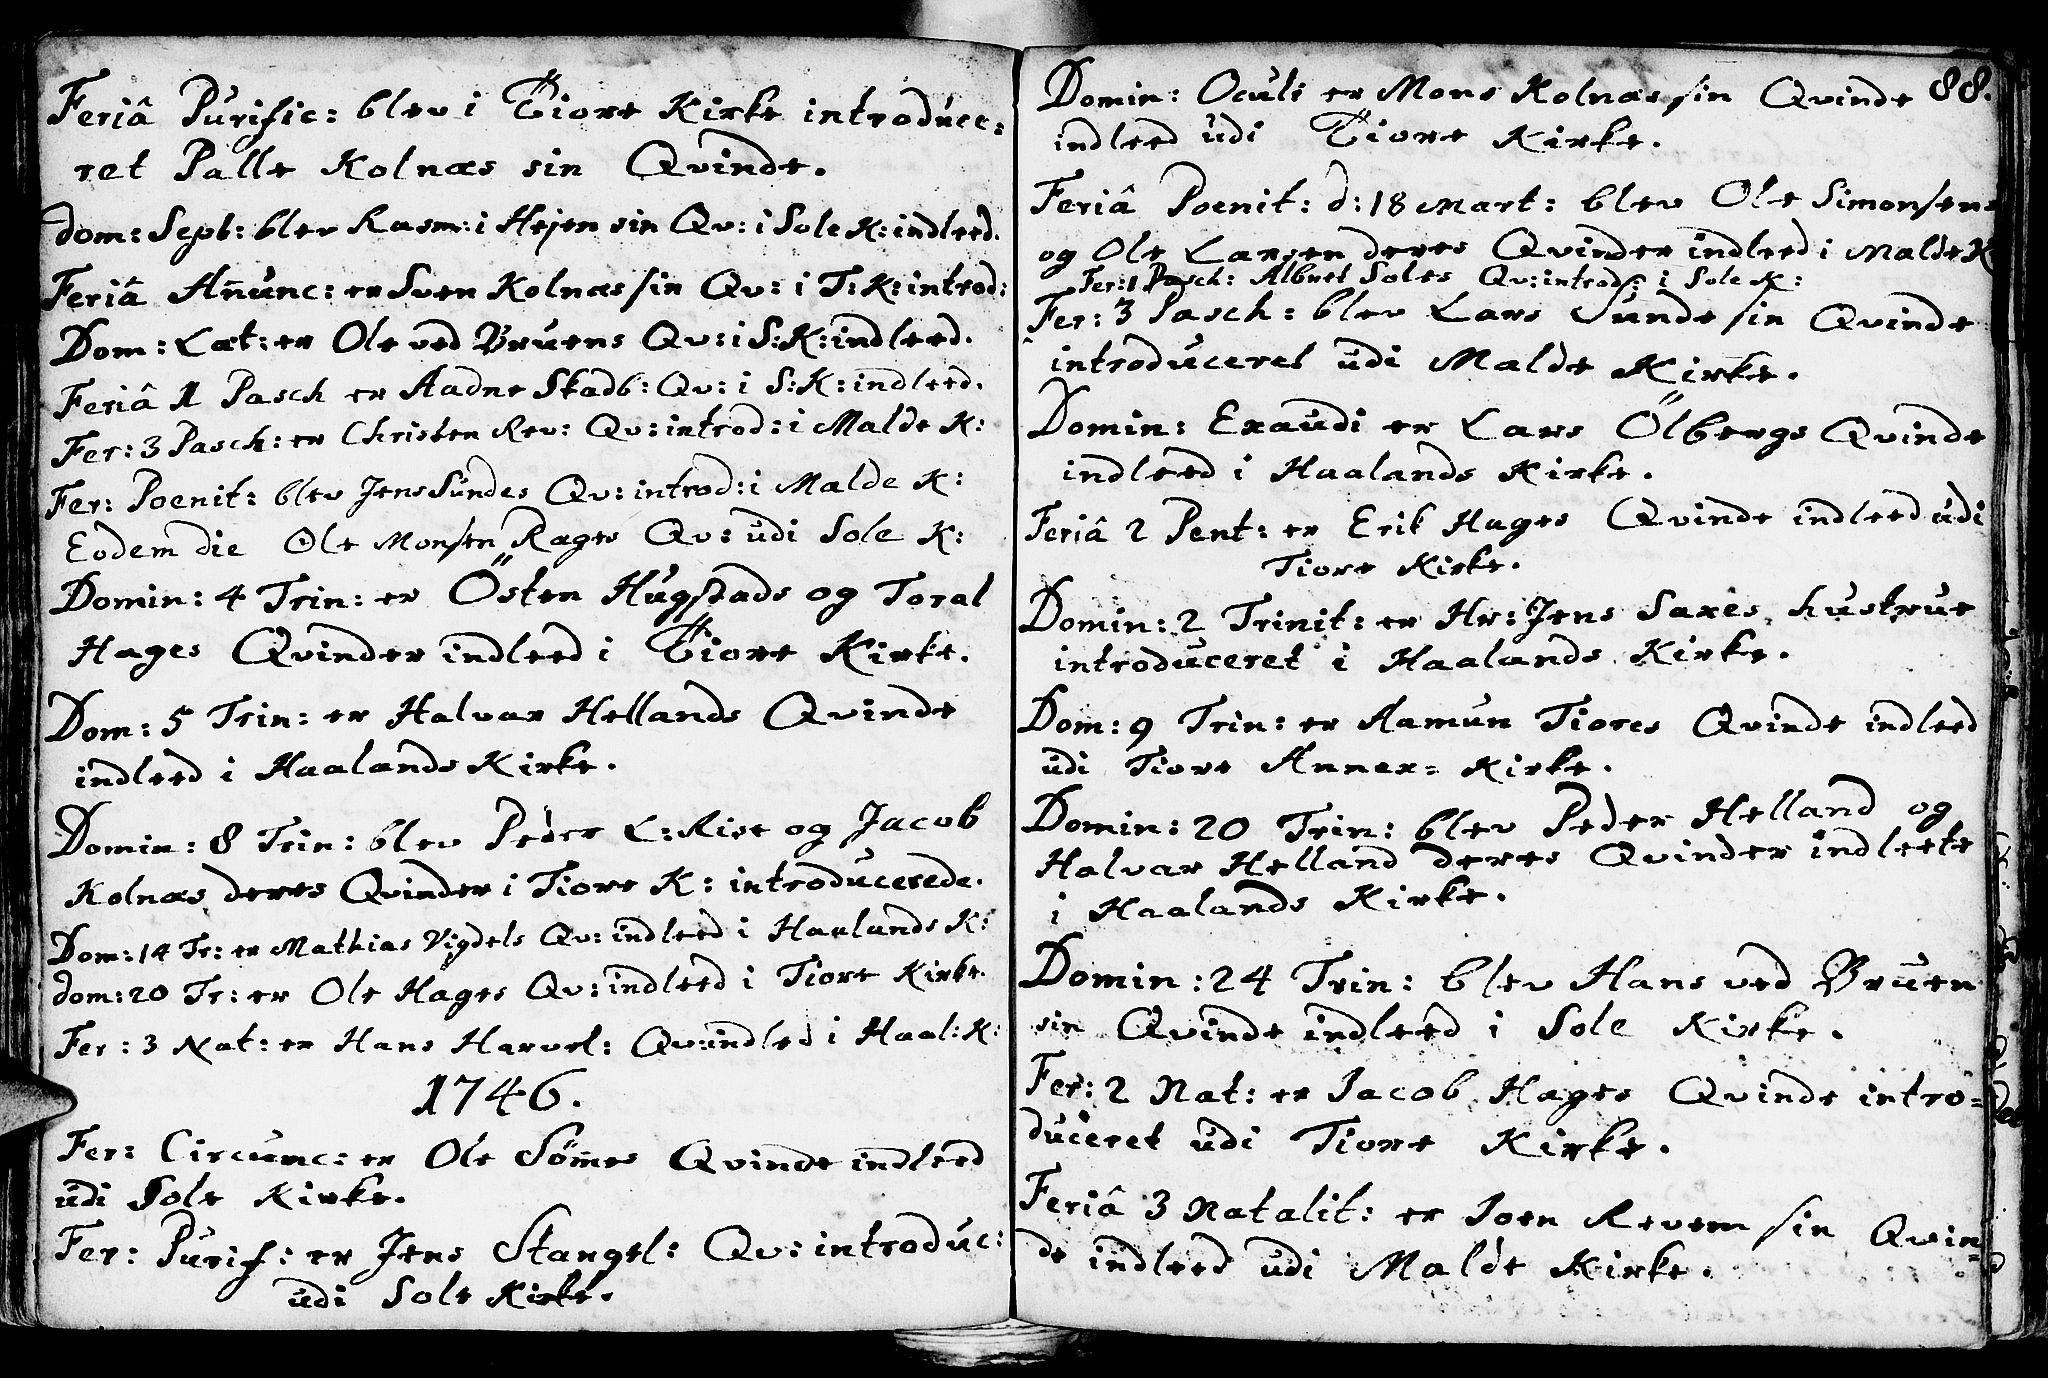 Feriâ Purific: blev i Tiore Kirke introduce:
ret Palle Kolnæs sin Qvinde.
Dom: Sept: blev Rasm: i Hejen sin Qv: i Sole K: indleed.
Feriâ Anunc: er Sven Kolnæs sin Qv: i T: K: introd:
Dom: Læt: er Ole ved Bruens Qv: i S: K: indleed.
Feriâ 1 Pasch er Aadne Skadb: Qv: i S: K: indleed.
Fer: 3 Pasch: er Christen Rev: Qv: introd: i Malde K:
Fer: Poenit: blev Jens Sundes Qv: introd: i Malde K:
Eodem die Ole Monsen Rages Qv: udi Sole K:
Domin: 4 Trin: er Östen Hugstads og Toral
Hages Qvinder indleed i Tiore Kirke.
Dom: 5 Trin: er Halvar Hellands Qvinde
indleed i Haalands Kirke.
Domin: 8 Trin: blev Peder L: Rise og Jacob
Kolnæs deres Qvinder i Tiore K: introducerede.
Dom: 14 Tr: er Mathias Vigdels Qv: indleed i Haalands K:
dom: 20 Tr: er Ole Hages Qv: indleed i Tiore Kirke.
Fer: 3 Nat: er Hans Harvel: Qv: indleed i Haal: K:
1746.
Fer: Circumc: er Ole Sømes Qvinde indleed
udi Sole Kirke.
Fer: Purif: er Jens Stangel: Qv: introduc:
udi Sole Kirke.
88.
Domin: Oculi er Mons Kolnæs sin Qvinde
indleed udi Tiore Kirke.
Feriâ Poenit: d: 18 Mart: blev Ole Simonsens
og Ole Larsen deres Qvinder indleed i Malde K
Fer: 1 Pasch: Albret Soles Qv: introd: i Sole K:
Fer: 3 Pasch: blev Lars Sunde sin Qvinde
introduceret udi Malde Kirke.
Domin: Exaudi er Lars Ölbergs Qvinde
indleed i Haalands Kirke.
Feriâ 2 Pent: er Erik Hages Qvinde indleed udi
Tiore Kirke.
Domin: 2 Trinit: er Hr: Jens Saxes hustrue
introduceret i Haalands Kirke.
Dom: 9 Trin: er Aamun Tiores Qvinde indleed
udi Tiore Annex= Kirke.
Domin: 20 Trin: blev Peder Helland og
Halvar Helland deres Qvinder indleete
i Haalands Kirke.
Domin: 24 Trin: blev Hans ved Bruen
sin Qvinde indleed i Sole Kirke.
Fer: 2 Nat: er Jacob Hages Qvinde intro=
duceret udi Tiore Kirke.
Feriâ 3 Natalit: er Joen Revem sin Qvin=
de indleed udi Malde Kirke.